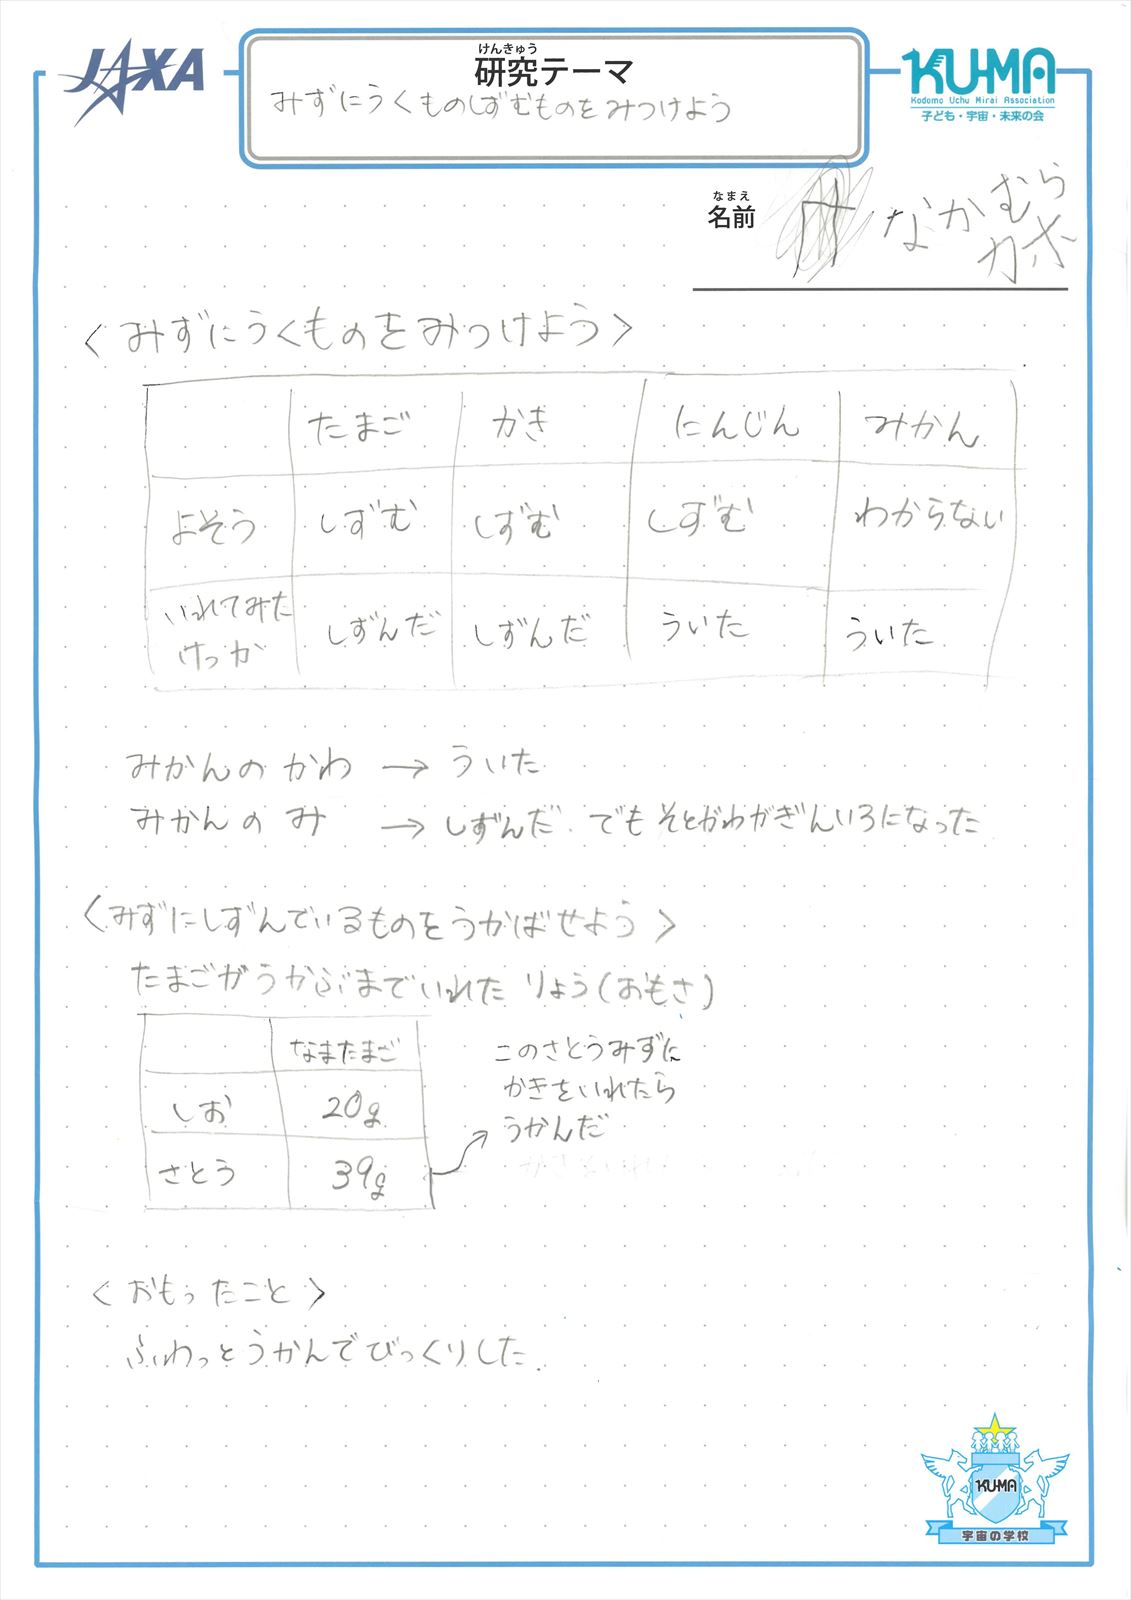 JAXA
けんきゅう
研究テーマ
みずにうくものしずむものをみつけよう
KU-MA
Kodomo Uchu Mirai Association
子ども・宇宙・未来の会
なまえ
名前
なかむら
<みずにうくものをみつけよう>
たまご かき にんじん みかん
よそう しずむ しずむ しずむ わからない
いれてみた
けっか しずんだ しずんだ ういた ういた
みかんのかわ → ういた
みかんのみ → しずんだ. でもそとがわがぎんいろになった
<みずにしずんでいるものをうかばせよう>
たまごがうかぶまでいれたりょう(おもさ)
なまたまご
しお 20g
さとう 39g
このさとうみずに
かきをいれたら
うかんだ
<おもったこと>
ふわっとうかんでびっくりした.
KU-MA
宇宙の学校